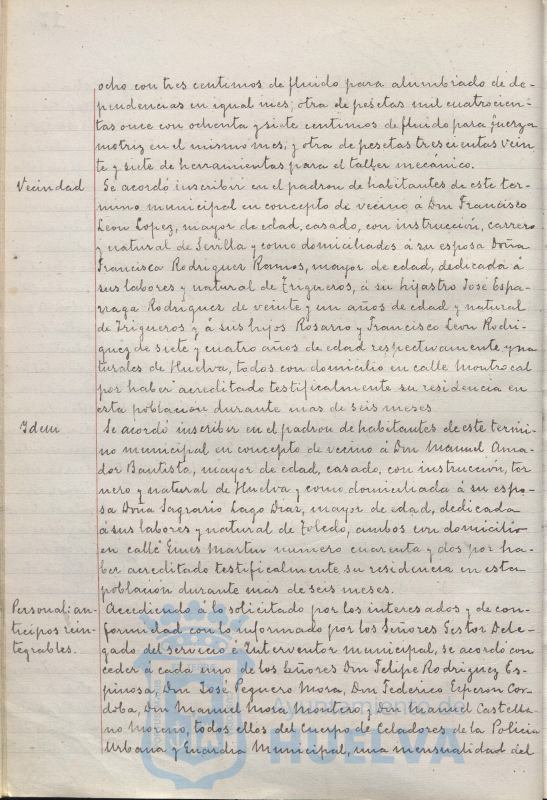 ocho con tres centimos de fluido para alumbrado de de-
pendencias en igual mes; otra de pesetas mil cuatrocien-
tas once con ochenta y siete centimos de fluido para fuerza
motriz en el mismo mes; y otra de pesetas trescientas vein
te y siete de herramientas para el taller mecánico.
Vecindad
Se acordó inscribir en el padron de habitantes de este ter-
mino municipal en concepto de vecino á Don Francisco
Leon Lopez, mayor de edad, casado, con instrucción, carrero
y natural de Sevilla y como domiciliados á su esposa Doña
Francisca Rodriguez Ramos, mayor de edad, dedicada á
sus labores y natural de Trigueros, á su hijastro José Espa-
rraga Rodriguez de veinte y un años de edad y natural
de Trigueros y á sus hijos Rosario y Francisco Leon Rodri-
guez de siete y cuatro años de edad respectivamente y na
turales de Huelva, todos con domicilio en calle Montrocal
por haber acreditado testificalmente su residencia en
esta poblacion durante mas de seis meses.
Idem
Se acordó inscribir en el padron de habitantes de este termi
no municipal en concepto de vecino á Don Manuel Ama-
dor Bautista, mayor de edad, casado, con instrucción, tor
nero y natural de Huelva y como domiciliada á su espo-
sa Doña Sagrario Lago Diaz, mayor de edad, dedicada
á sus labores y natural de Toledo, ambos con domicilio
en calle Ginés Martin numero cuarenta y dos por ha-
ber acreditado testificalmente su residencia en esta
poblacion durante mas de seis meses.
Personal: an-
ticipos rein-
tegrables.
Accediendo á lo solicitado por los interesados y de con-
formidad con lo informado por los Señores Gestor Dele-
gado del servicio é Interventor municipal, se acordó con
ceder á cada uno de los Señores Don Felipe Rodriguez Es-
pinosa, Don José Peguero Mora, Don Federico Esperon Cor-
doba, Don Manuel Mora Montero y Don Manuel Castella-
no Moreno, todos ellos del Cuerpo de Celadores de la Policia
Urbana y Guardia Municipal, una mensualidad del
Ayuntamiento de
HUELVA